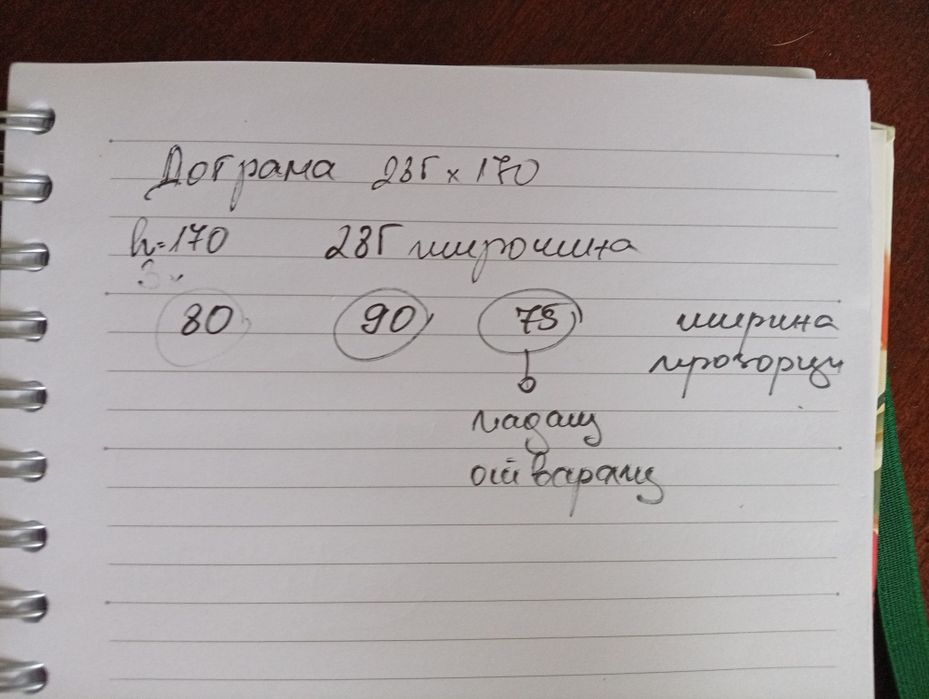 Дограма 285 x 170
h=170 285 широчина
3x
80 90 75 ширина
прозорци
падащ
отварящ